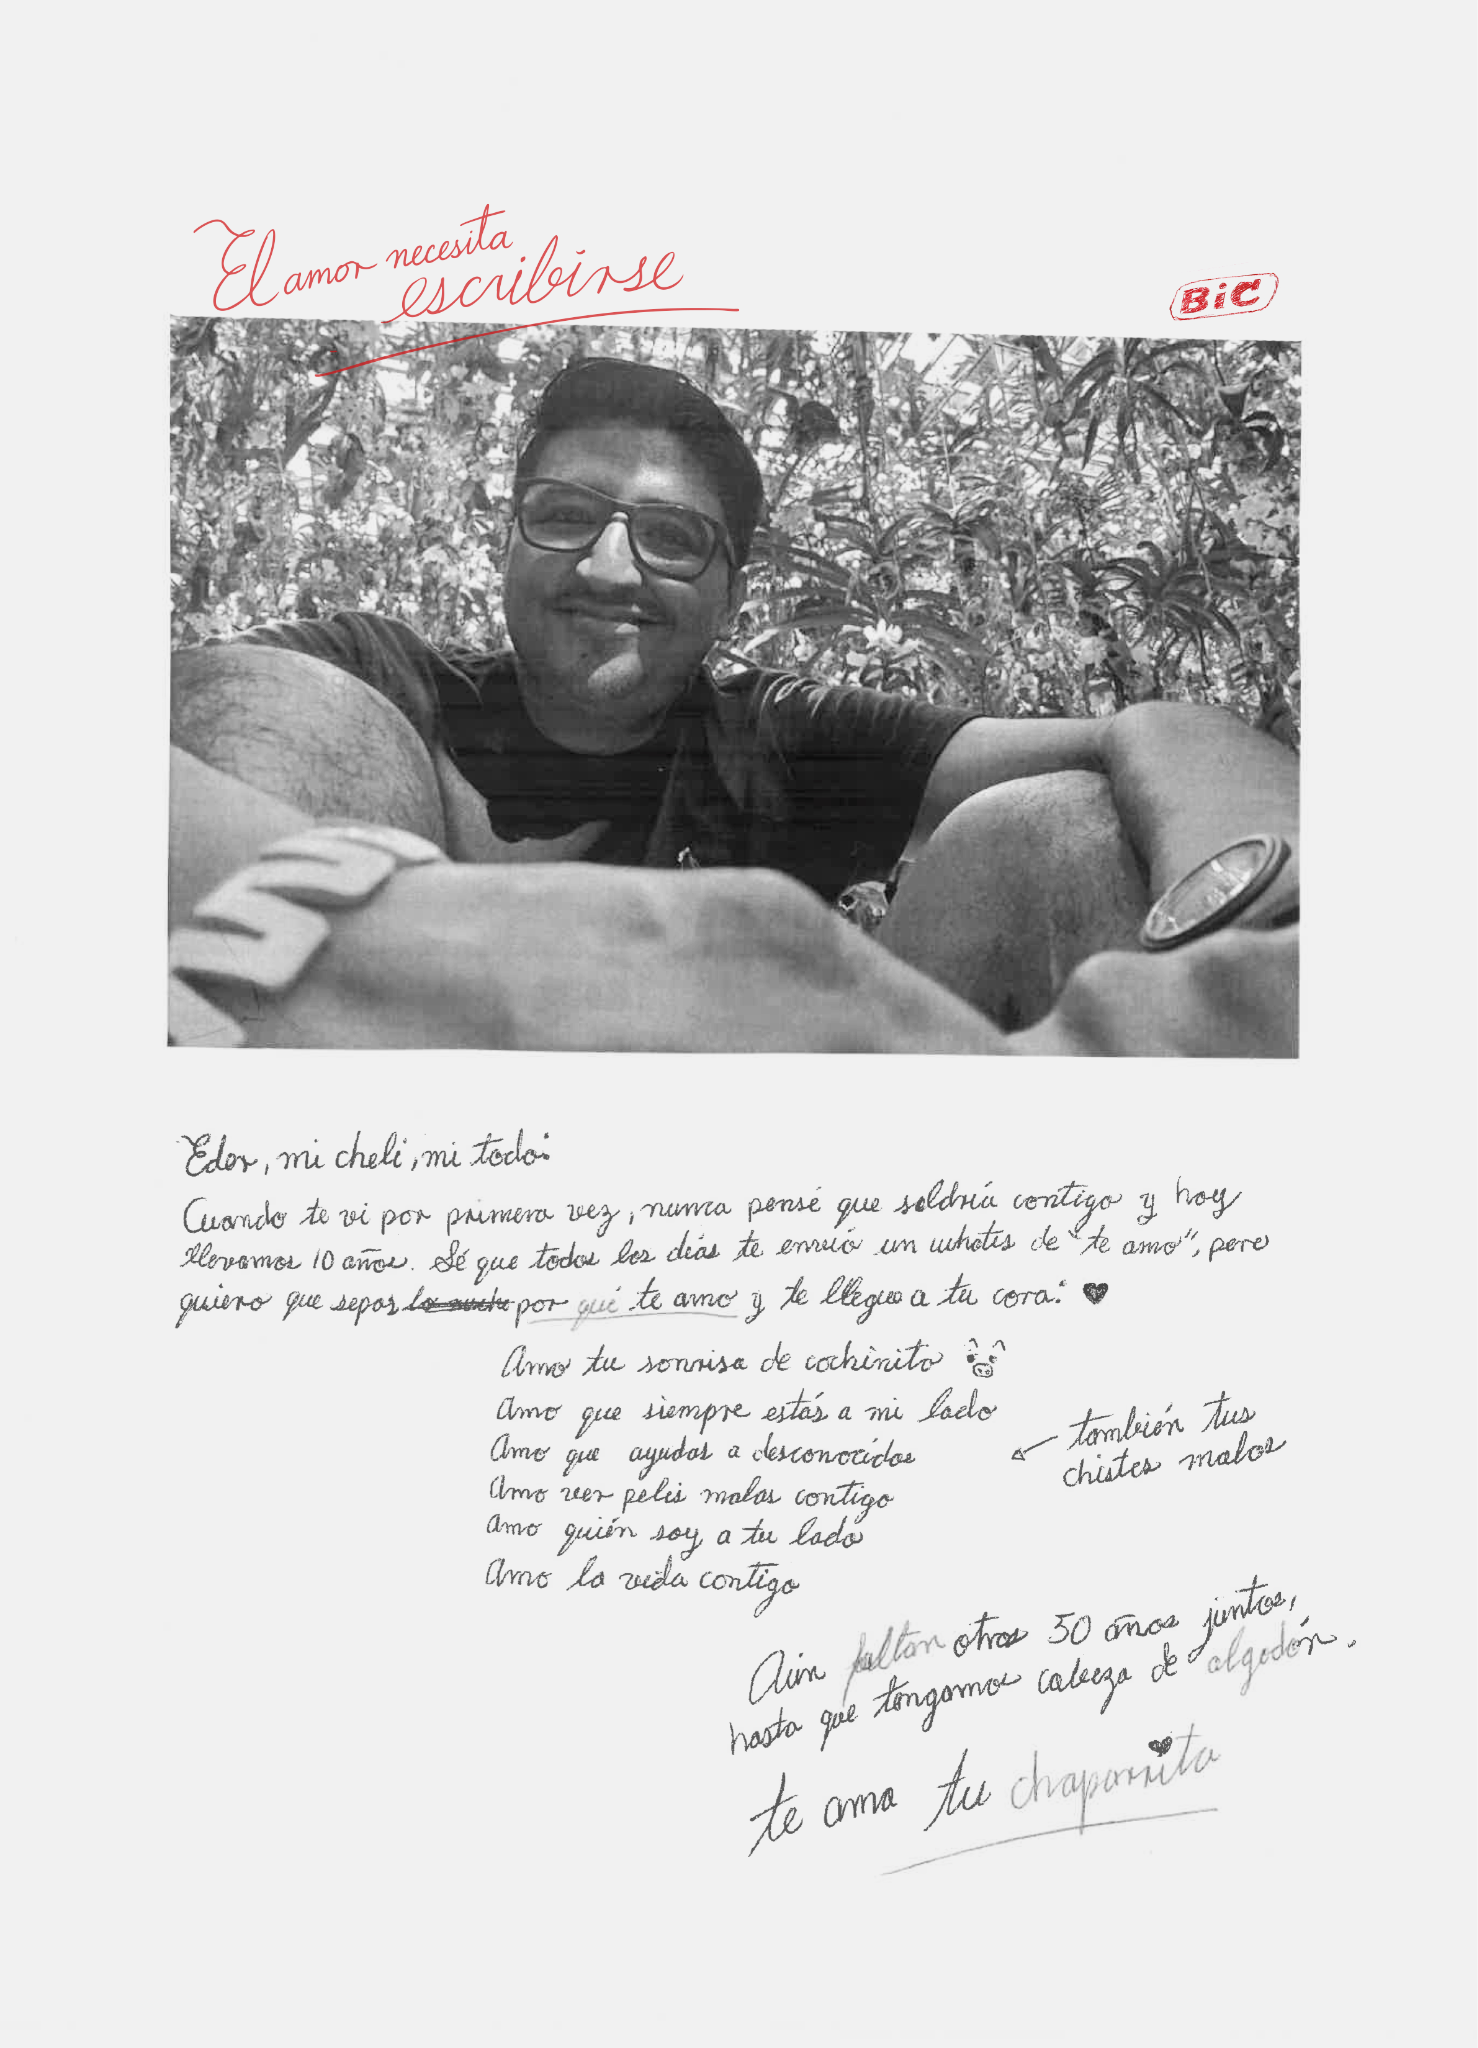 El amor necesita
escribirse
BiC
Eder, mi cheli, mi todo:
Cuando te vi por primera vez, nunca pensé que saldría contigo y hoy
llevamos 10 años. Sé que todos los días te envío un whats de "te amo", pero
quiero que sepas por qué te amo y te llegue a tu cora: ♥
Amo tu sonrisa de cochinito
Amo que siempre estás a mi lado
Amo que ayudas a desconocidos
también tus
chistes malos
Amo ver pelis malas contigo
Amo quién soy a tu lado
Amo la vida contigo
Aún faltan otros 50 años juntos,
hasta que tengamos cabeza de algodón.
te ama tu chaparrita